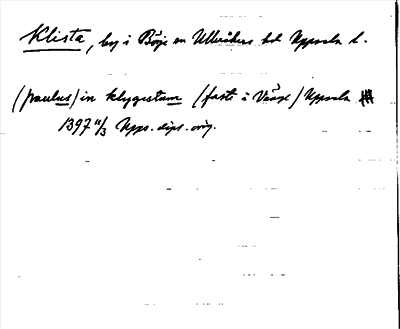 Klista, by i Bälinge sn Ulleråkers hd Uppsala l.
(paulus) in klygestum (faste i Vänge) Uppsala
1397 11/3 Upps. dipl. orig.